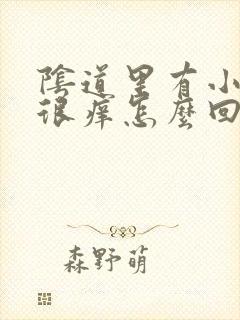 陰道里有小
很癢怎麼回
森野萌